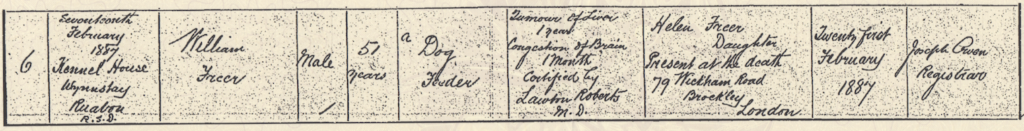 6
Seventeenth
February
1887
Kennel House
Wynnstay
Ruabon
R.S.D.
William
Freer
Male
51
years
a Dog
Feeder
Tumour of Liver
1 year
Congestion of Brain
1 Month
Certified by
Lawton Roberts
M.D.
Helen Freer
Daughter
Present at the death
79 Wickham Road
Brockley
London
Twenty first
February
1887
Joseph Owen
Registrar